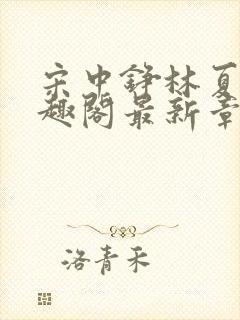 宋中铮林夏
趣阁最新章
洛青禾